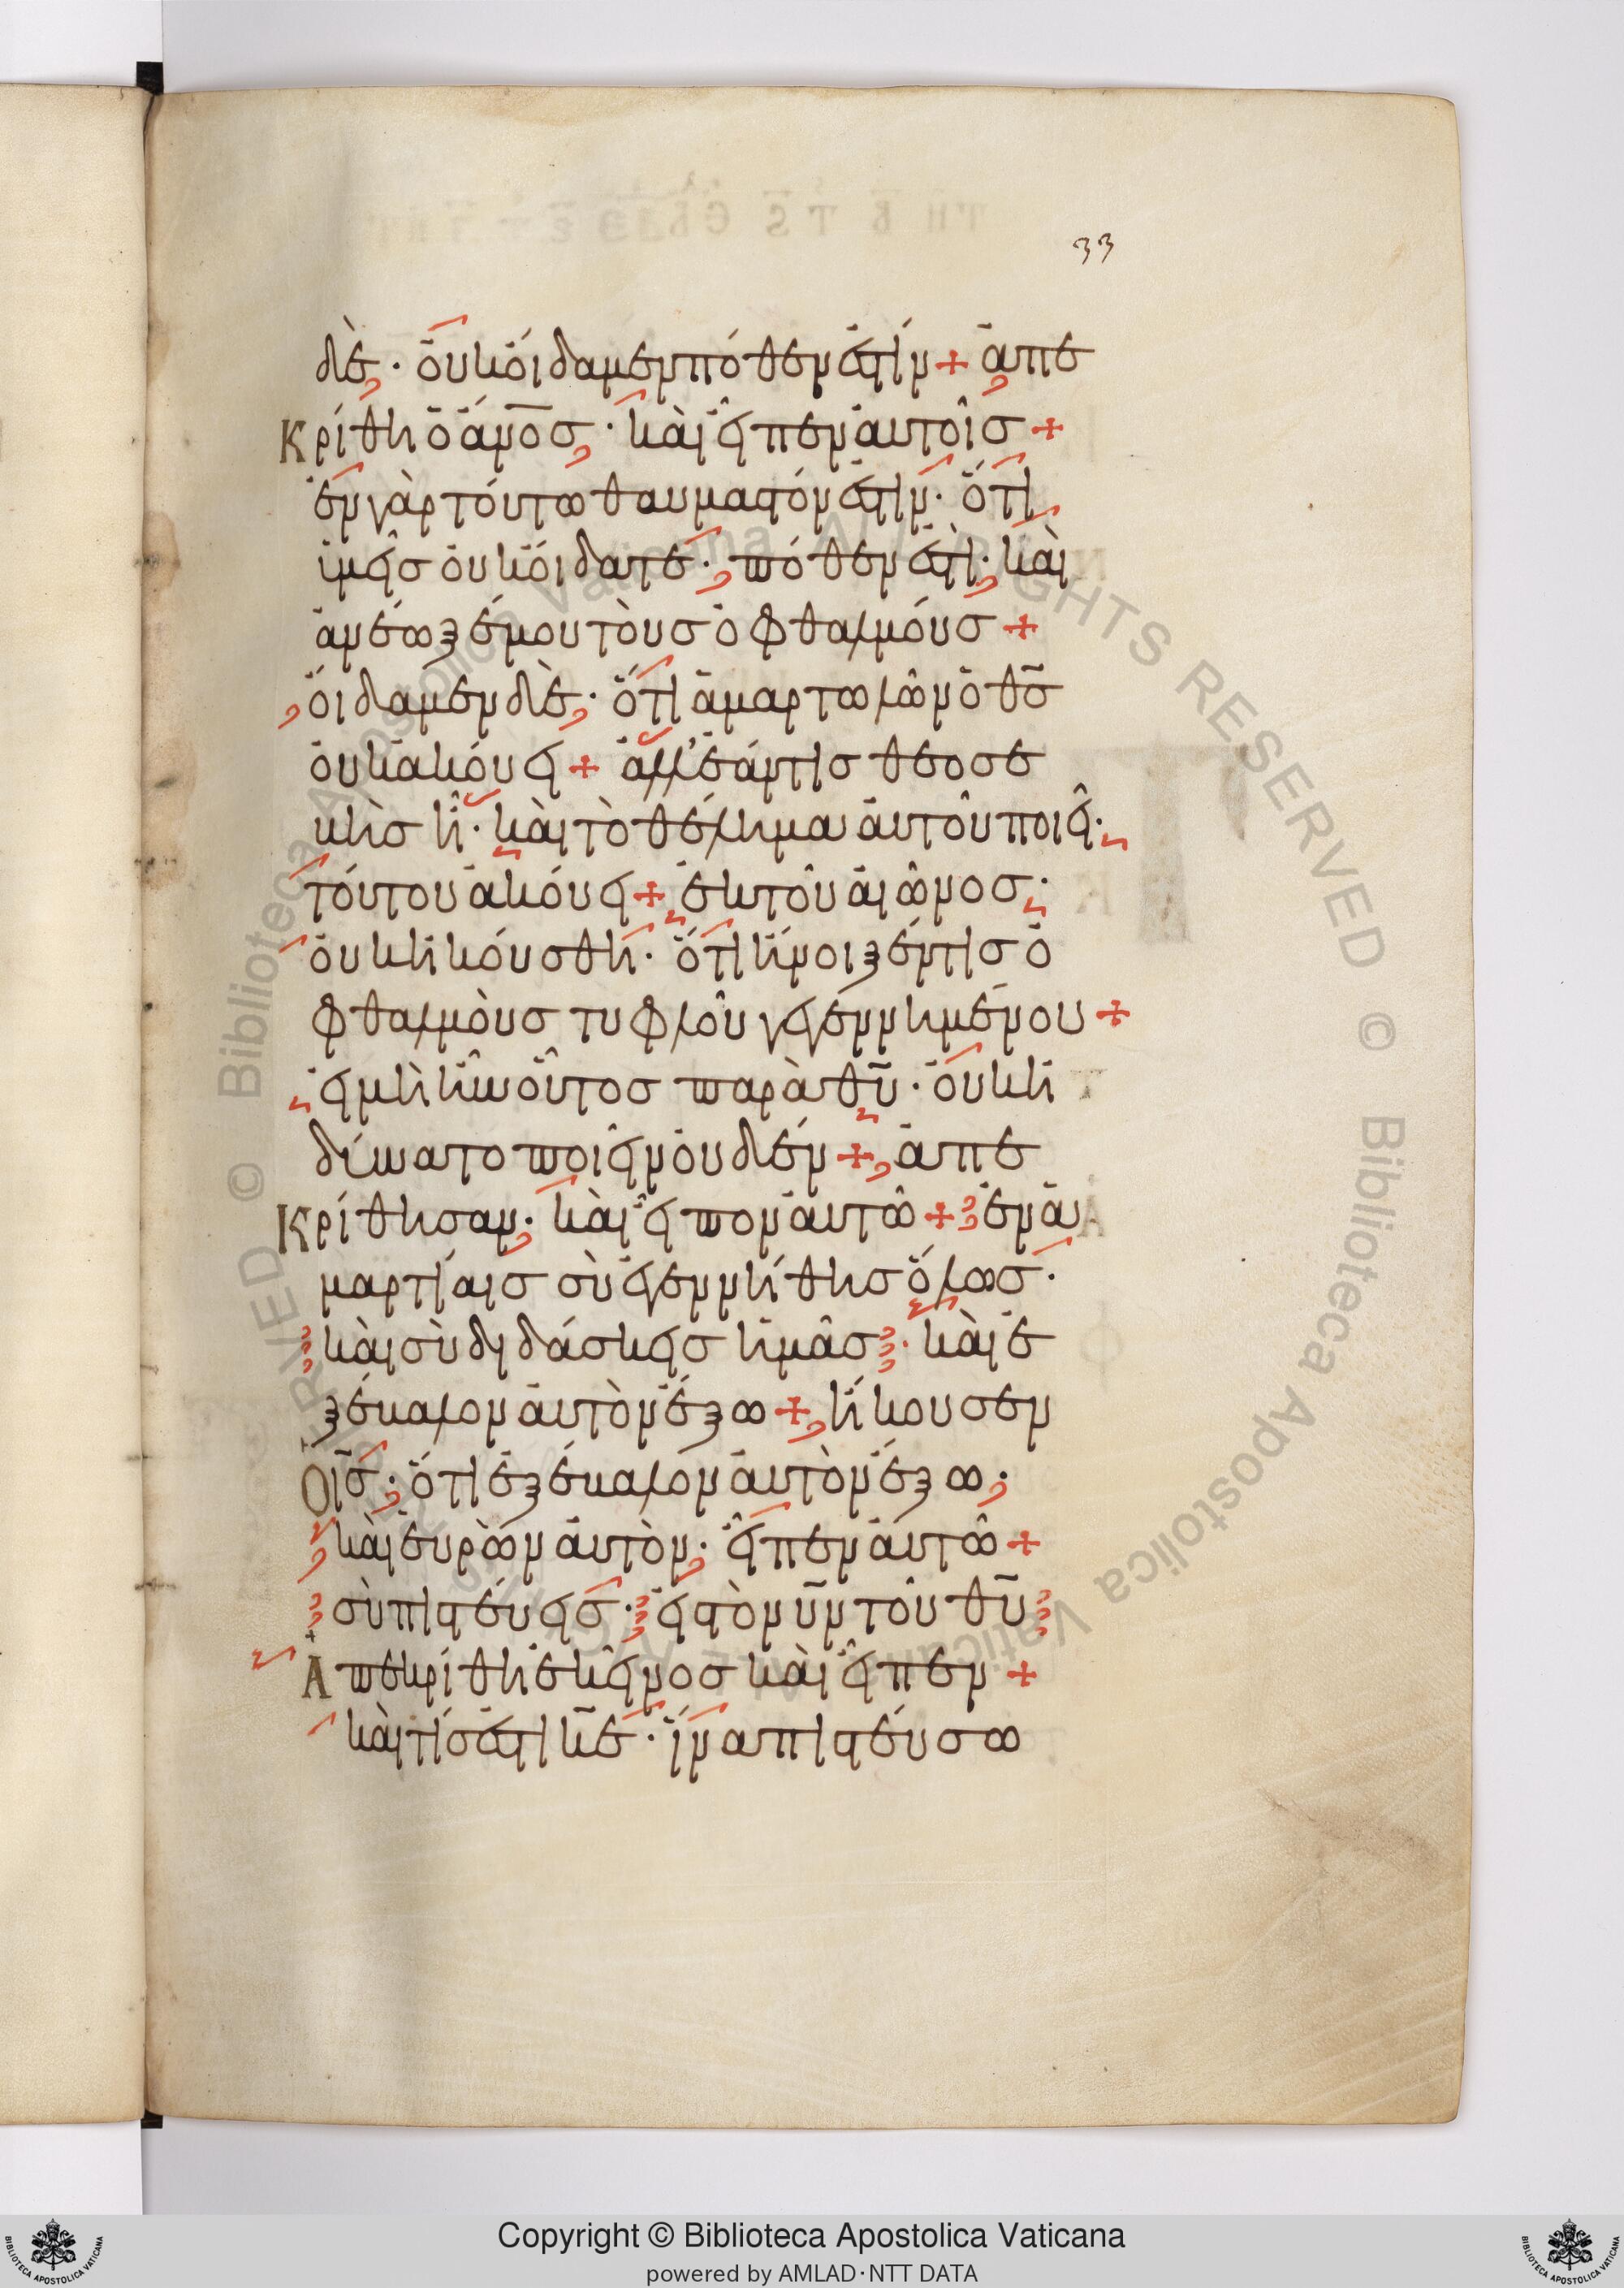 33
δὲ · οὐκ οἴδαμεν πόθεν ἐστίν + ἀπε
κρίθη ὁ ἄν̅ο̅σ · καὶ εἶπεν αὐτοῖσ +
ἐν γὰρ τούτω θαυμαστόν ἐστιν · ὅτι
ἱμεῖσ οὐκ οἴδατε · πόθεν ἐστὶ · καὶ
ἀνέωξέ μου τοὺσ ὀφθαλμούσ +
οἴδαμεν δὲ · ὅτι ἁμαρτωλῶν ὁ θ̅σ̅
οὐκ ἀκούει + ἀλλ' ἐάν τισ θεοσε
κὴσ ῆ · καὶ τὸ θέλημα αὐτοῦ ποιεῖ ·
τούτου ἀκούει + ἐκ τοῦ αἰῶνοσ ·
οὐκ ἠκούσθη · ὅτι ἤνοιξέν τισ ὀ
φθαλμοὺσ τυφλοῦ γεγεννημένου +
εἰ μὴ ἦν οὗτοσ παρὰ θ̅υ̅ · οὐκ ἠ
δύνατο ποιεῖν οὐδέν + ἀπε
κρίθησαν · καὶ εἶπον αὐτῶ + ἐν ἁ
μαρτίαισ σὺ ἐγεννήθησ ὅλωσ ·
καὶ σὺ διδάσκεισ ἡμᾶσ · καὶ ἐ
ξέκαλον αὐτὸν ἔξω + ἤκουσεν
Ο ι̅σ̅ · ὅτι ἐξέκαλον αὐτὸν ἔξω ·
καὶ εὑρὼν αὐτὸν · εἶπεν αὐτῶ +
σὺ πιστεύεισ · εἰσ τὸν υ̅ν̅ τοῦ θ̅υ̅
Ἀπεκρίθη ἐκεῖνοσ καὶ εἶπεν +
καὶ τίσ ἐστι κ̅ε̅ · ἵνα πιστεύσω
Copyright © Biblioteca Apostolica Vaticana
powered by AMLAD·NTT DATA